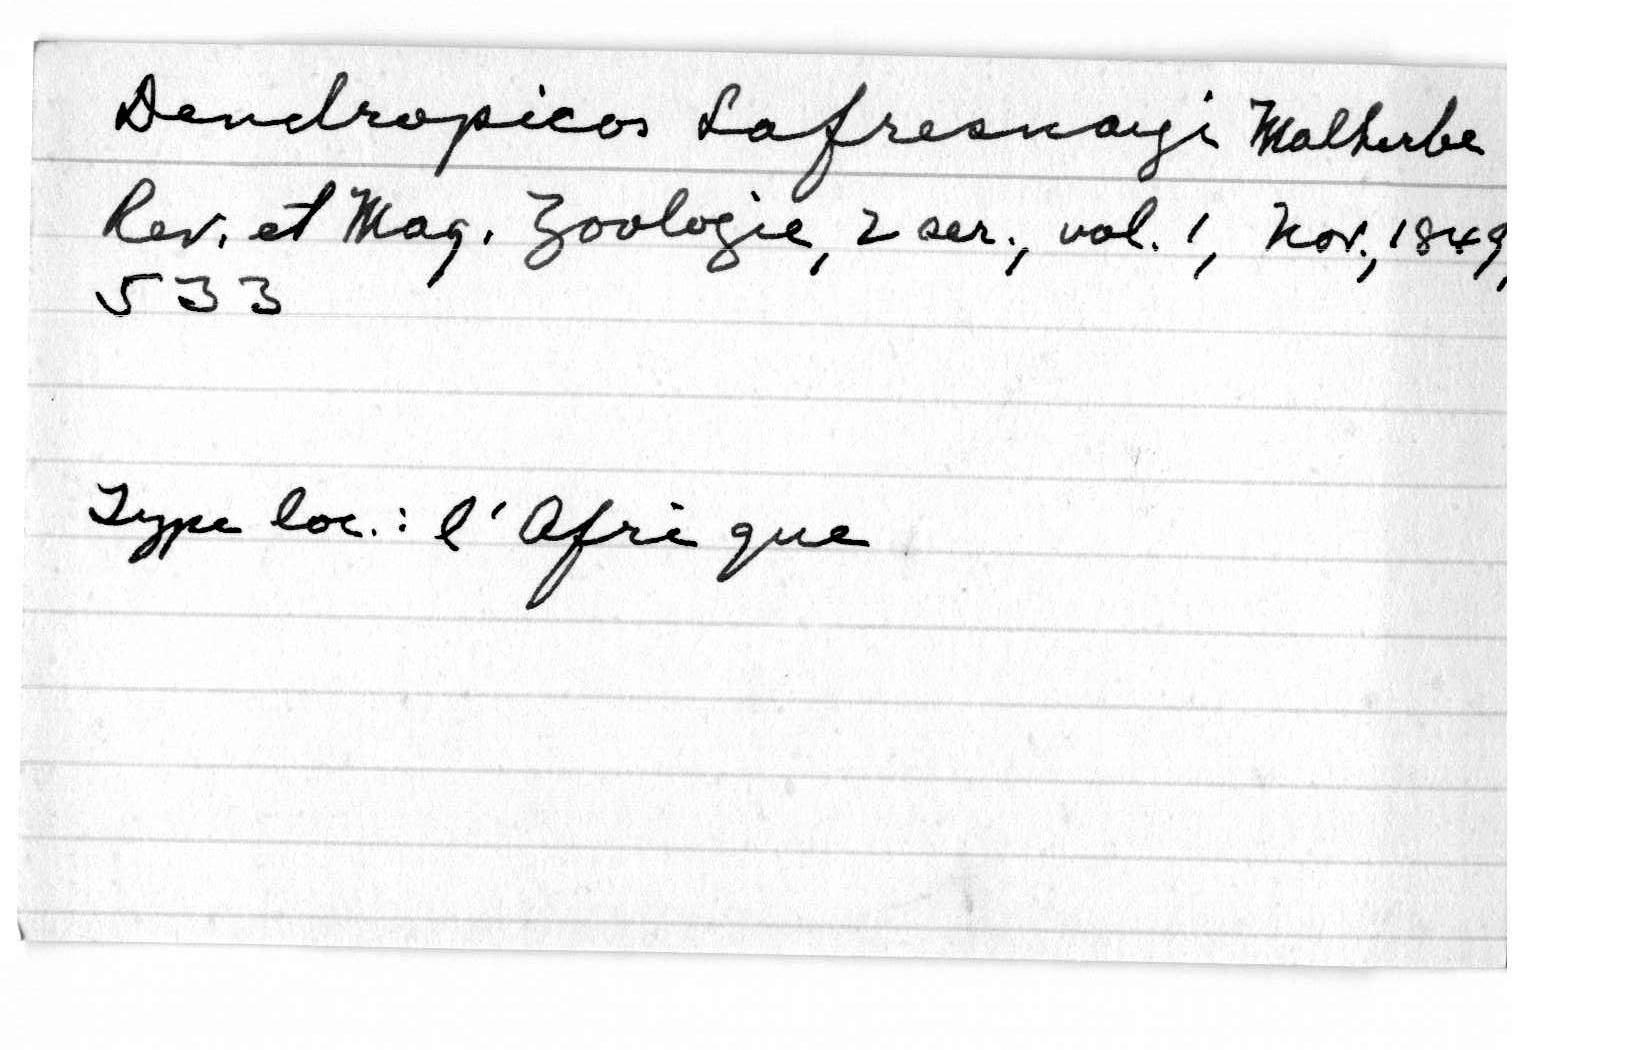 Dendropicos Lafresnayi Malherbe
Rev. et Mag. Zoologie, 2 ser., vol. 1, Nov., 1849,
533
Type loc.: l'Afrique